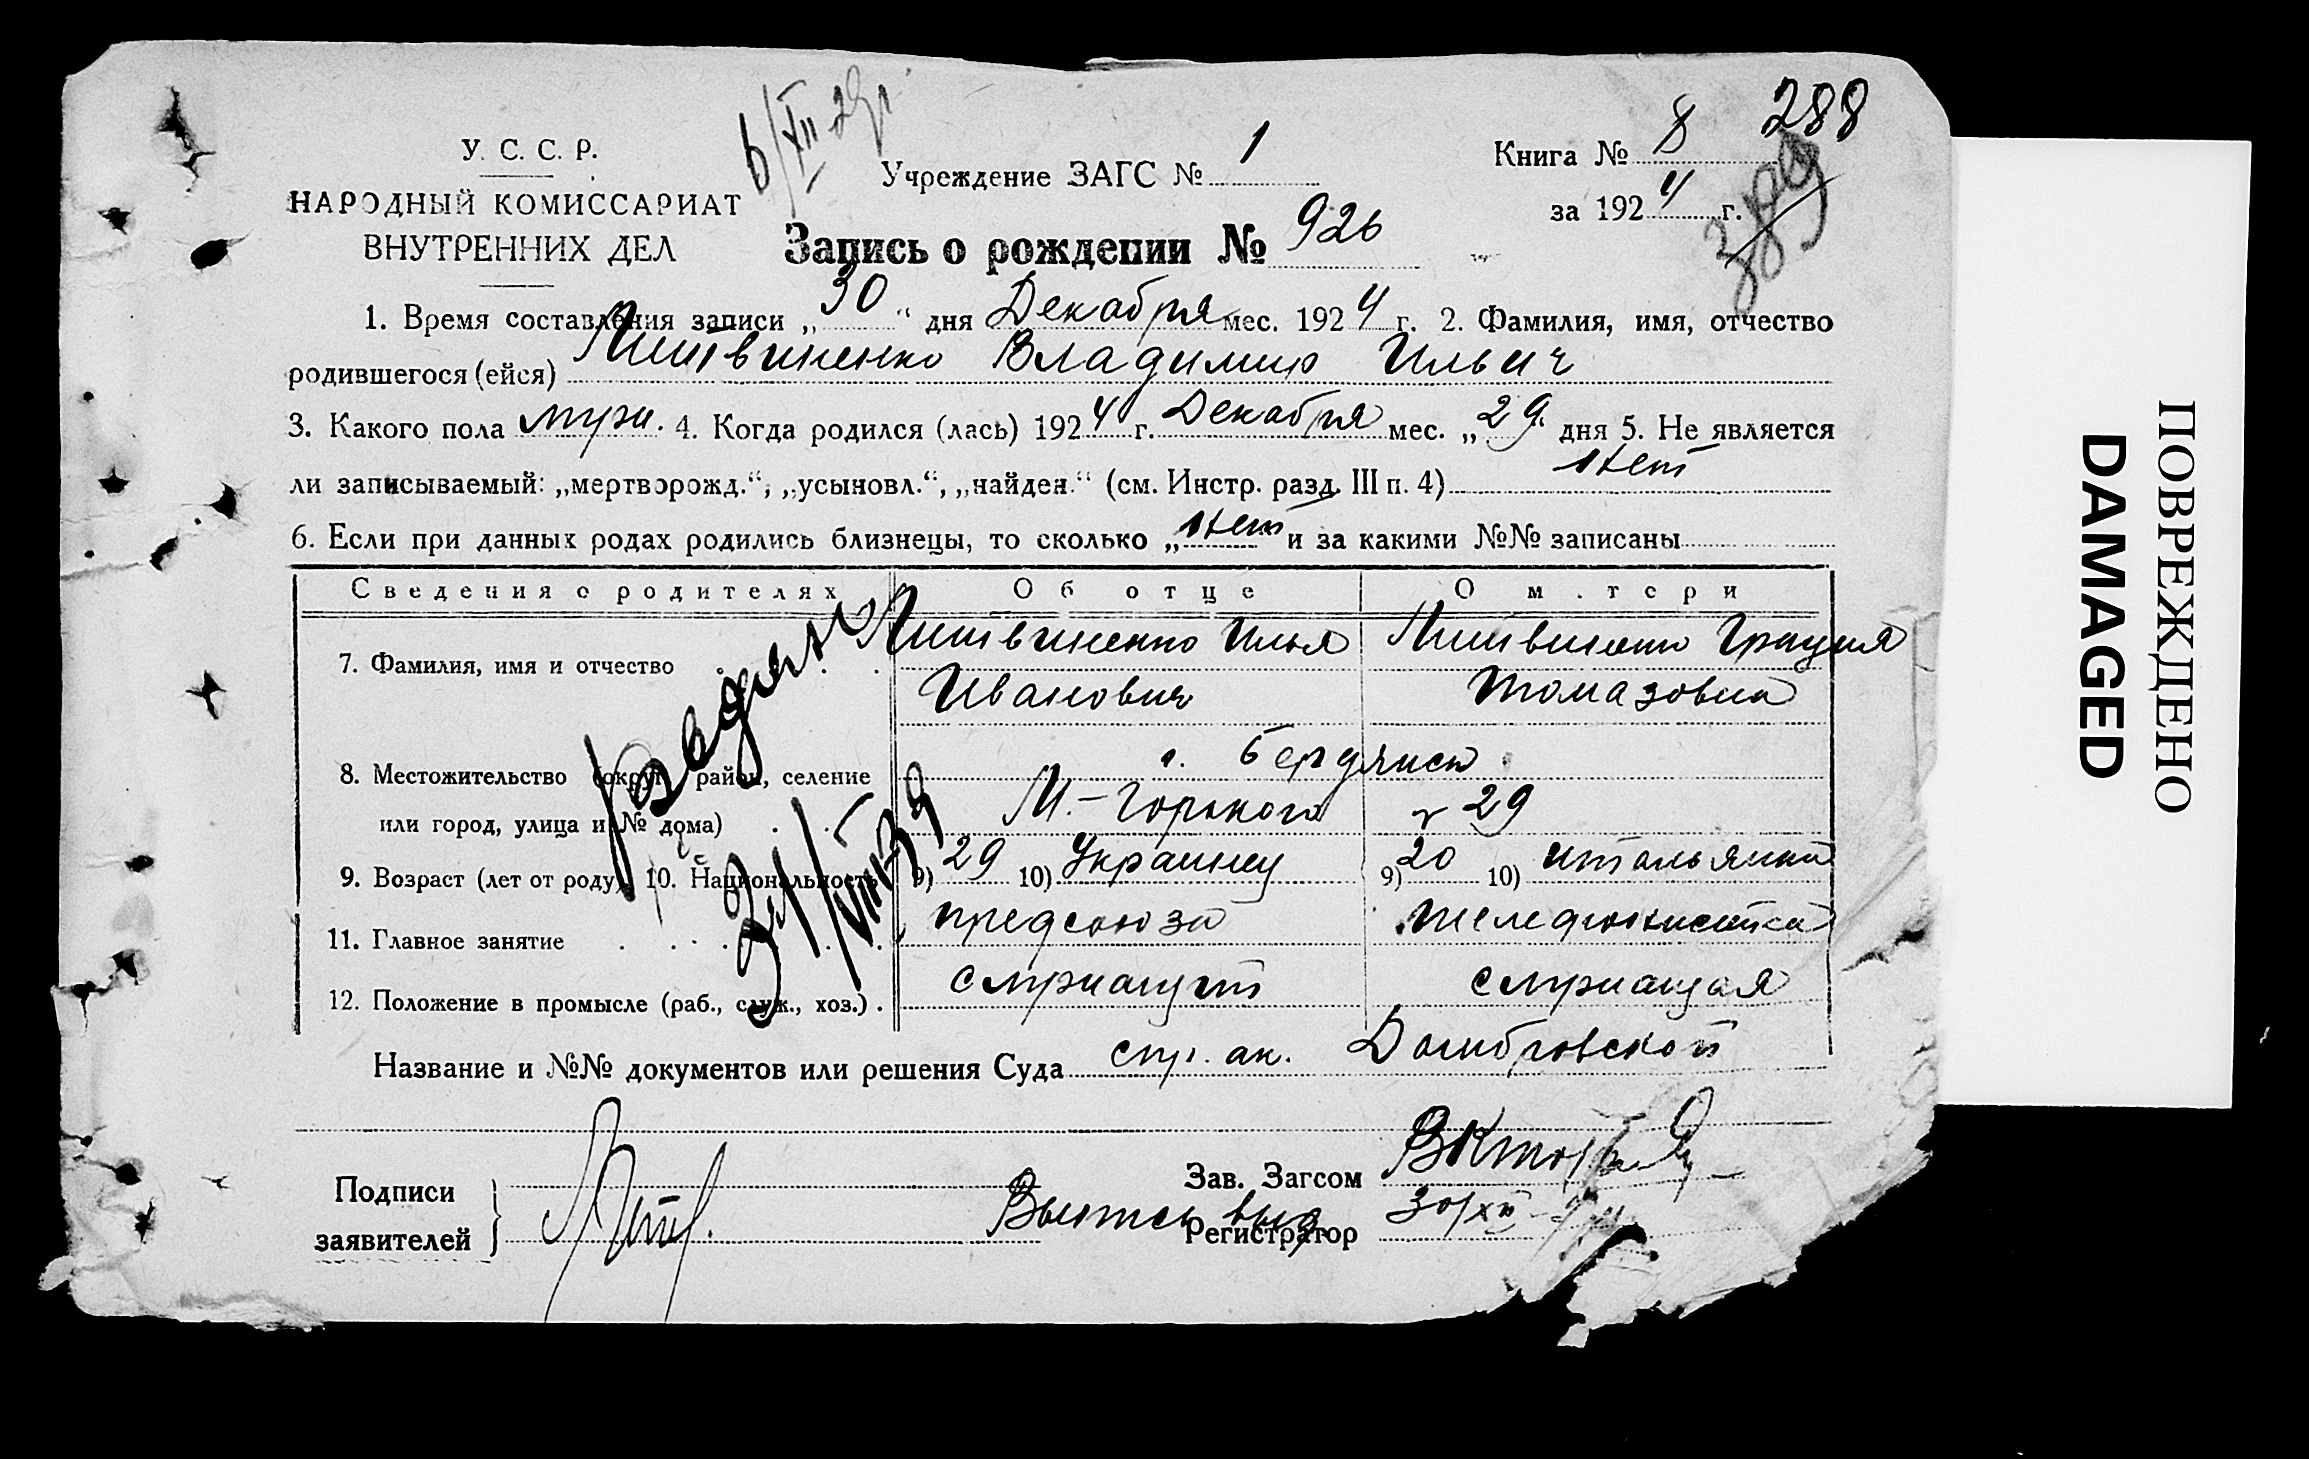 288
6/XII-29г.
У. С. С. Р.
НАРОДНЫЙ КОМИССАРИАТ
ВНУТРЕННИХ ДЕЛ
Учреждение ЗАГС № 1
Книга № 8
за 1924 г.
Запись о рождении № 926
1. Время составления записи „30“ дня Декабря мес. 1924 г. 2. Фамилия, имя, отчество
родившегося (ейся) Литвиненко Владимир Ильич
3. Какого пола муж. 4. Когда родился (лась) 1924 г. Декабря мес. „29“ дня 5. Не является
ли записываемый: „мертворожд.“, „усыновл.“, „найден.“ (см. Инстр. разд. III п. 4) Нет
6. Если при данных родах родились близнецы, то сколько „нет и за какими №№ записаны
Сведения о родителях Об отце О м.тери
7. Фамилия, имя и отчество Литвиненко Илья Литвиненко Грация
Иванович Томазовна
8. Местожительство (округ, район, селение г. Бердянск
или город, улица и № дома) М.-Горького 29
9. Возраст (лет от роду) 10. Национальность 9) 29 10) Украинец 9) 20 10) итальянка
11. Главное занятие предсоюза телефонистка
12. Положение в промысле (раб., служ., хоз.) служащий служащая
Название и №№ документов или решения Суда спр. ак. Домбровской
Подписи
заявителей
Лит
Зав. Загсом
Регистратор
Выпись выд. 30/XII
ПОВРЕЖДЕНО
DAMAGED